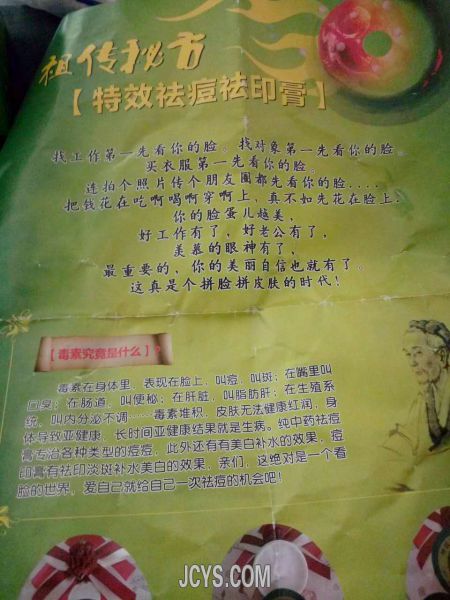 祖传秘方
【特效祛痘祛印膏】
找工作第一先看你的脸。找对象第一先看你的脸。
买衣服第一先看你的脸。
连拍个照片传个朋友圈都先看你的脸....
把钱花在吃啊喝啊穿啊上,真不如先花在脸上.
你的脸蛋儿越美,
好工作有了,好老公有了,
羡慕的眼神有了,
最重要的,你的美丽自信也就有了。
这真是个拼脸拼皮肤的时代!
【毒素究竟是什么】?
毒素在身体里、表现在脸上,叫痘,叫斑;在嘴里叫
口臭;在肠道,叫便秘;在肝脏,叫脂肪肝;在生殖系
统,叫内分泌不调……毒素堆积,皮肤无法健康红润,身
体导致亚健康,长时间亚健康结果就是生病。纯中药祛痘
膏专治各种类型的痘痘,此外还有有美白补水的效果,痘
印膏有祛印淡斑补水美白的效果,亲们,这绝对是一个看
脸的世界,爱自己就给自己一次祛痘的机会吧!
JCYS.COM